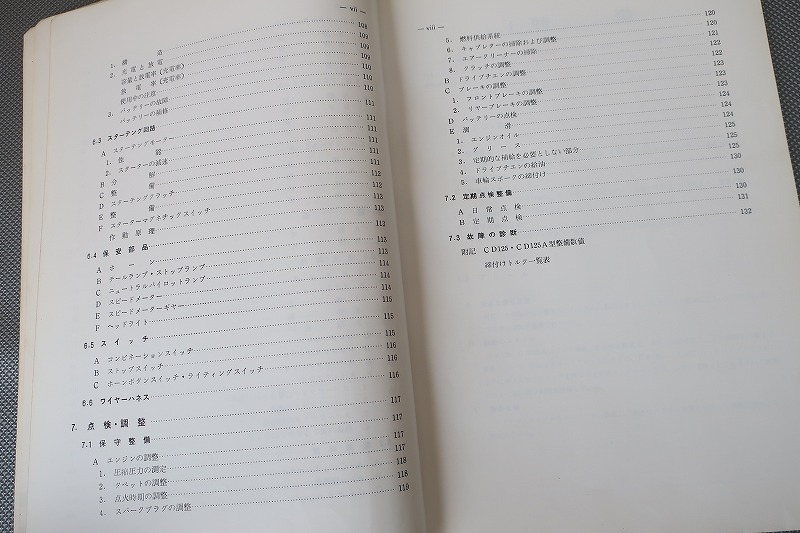 — vii —
1. 構　　　造 108
2. 充電と放電 109
容量と放電率（充電率） 109
放　電　率（充電率） 109
使用中の注意 109
3. バッテリーの故障 110
バッテリーの補修 110
6·3 スターテング回路 111
A スターテングモーター 111
1. 性　　　能 111
2. スターターの減速 111
B 分　　　解 111
C 整　　　備 112
D スターテングクラッチ 112
E 整　　　備 112
F スターターマグネチックスイッチ 113
作　動　原　理 113
6.4 保安部品 113
A ホ　ー　ン 113
B テールランプ・ストップランプ 113
C ニュートラルパイロットランプ 114
D スピードメーター 114
E スピードメーターギヤー 114
F ヘッドライト 115
6·5 スイッチ 115
A コンビネーションスイッチ 115
B ストップスイッチ 116
C ホーンボタンスイッチ・ライティングスイッチ 116
6.6 ワイヤーハネス 116
7. 点検・調整 117
7·1 保守整備 117
A エンジンの調整 117
1. 圧縮圧力の測定 117
2. タペットの調整 118
3. 点火時期の調整 118
4. スパークプラグの調整 119
— viii —
5. 燃料供給系統 120
6. キャブレターの掃除および調整 120
7. エアークリーナーの掃除 121
8. クラッチの調整 122
B ドライブチエンの調整 122
C ブレーキの調整 123
1. フロントブレーキの調整 123
2. リヤーブレーキの調整 123
D バッテリーの点検 124
E 潤　　　滑 124
1. エンジンオイル 124
2. グリース 125
3. 定期的な補給を必要としない部分 125
4. ドライブチエンの給油 125
5. 車輪スポークの締付け 130
7.2 定期点検整備 130
A 日常点検 130
B 定期点検 131
7.3 故障の診断 132
附記　CD125・CD125A型整備数値
締付けトルク一覧表